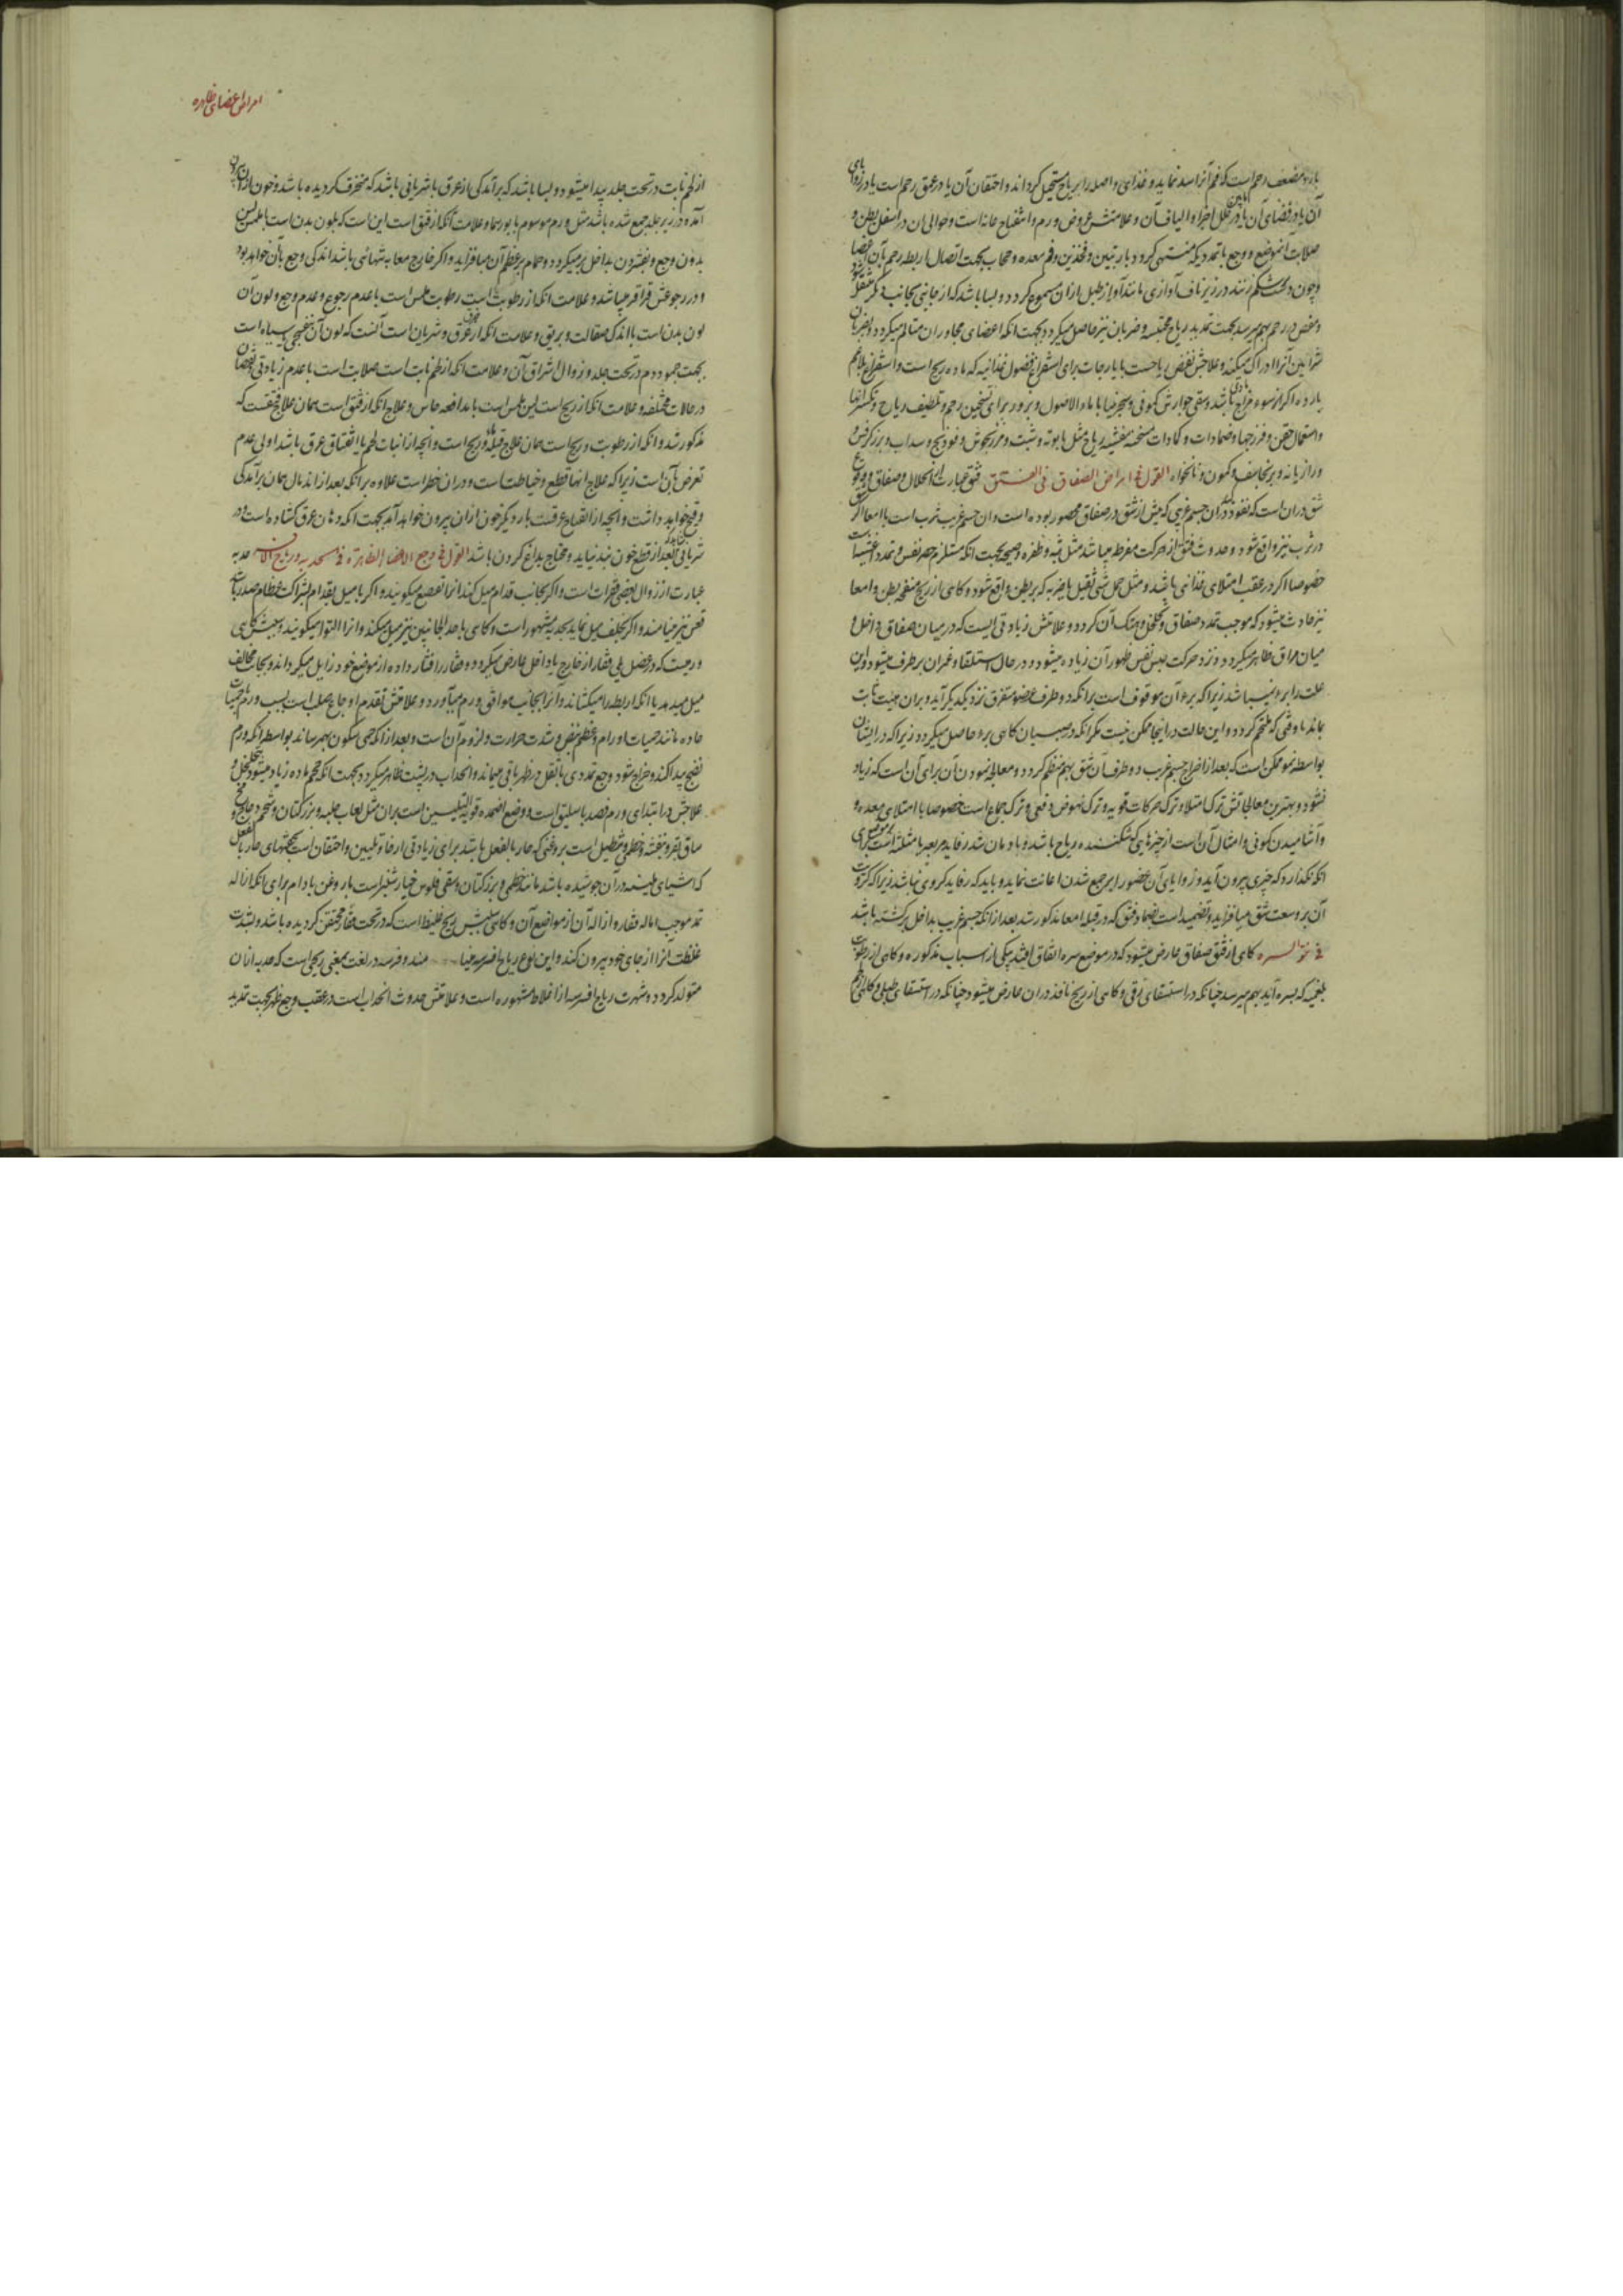 بارد مضعف رحم است که فم آنرا سد نماید و غذای واصله را بریاح مستحیل گرداند و احتقان آن یا در عمق رحم است یا در زوایای
آن یا در فضای آن یا در خلل اجزاء و الیاف آن و علامتش عروض ورم و انتفاخ عانه است و حوالی آن در اسفل بطن و
صلابت انموضع و وجع با تمدد یکه منتهی گردد باربتین و فخذین و فم معده و حجاب بجهت اتصال اربطه رحم بآن اعضا
و چون دست بر شکم زنند در زیر ناف آوازی مانند آواز طبل از ان مسموع گردد و بسا باشد که از جانبی بجانب دیگر منتقل شود
و مغص در رحم بهم میرسد بجهت تمدید ریاح محتبسه و ضربان نیز حاصل میگردد بجهت انکه اعضای مجاور ان متالم میگردد و ضربان
شرایین آنرا ادراک میکند و علاجش نفض ریاحست با یارجات برای استفراغ فضول غذائیه که ماده ریح است و استفراغ بلاغم
بارده اگر از سوء مزاج مادی باشد و سقی جوارش کمونی و سجرنیا با ماء الاصول و بزور برای تسخین رحم و تلطیف ریاح و تکسیر انها
و استعمال حقن و فرزجها و ضمادات و کمادات مسخنه مفشیه ریاح مثل بابونه و شبت و مرزنجوش و فودنج و سداب و بزر کرفس و
و رازیانه و برنجاسف و کمون و نانخواه القول فی امراض الصفاق فی الفتق فتق عبارت از انحلال صفاق و وقوع
شق در ان است که نفوذ کند در ان جسم غریبی که پیش از شق در صفاق محصور بوده است و ان جسم غریب ثرب است یا امعا اگر
در ثرب نیز واقع شود و حدوث فتق از حرکت مفرط میباشد مثل وثبه و طفره و صیحه بجهت انکه مستلزم حصر نفس و تمدد اغشیه است
خصوصا اگر در عقب امتلای غذائی باشد و مثل حمل شئ ثقیل یا ضربه که بر بطن واقع شود و گاهی از ریح منفخ بطن و امعا
نیز حادث میشود که موجب تمدد صفاق و تخلخل و هتک آن گردد و علامتش زیادتی ایست که در میان صفاق داخل و
میان مراق ظاهر میگردد و نزد حرکت و حبس نفس ظهور آن زیاده میشود و در حال استلقا و غمزان برطرف میشود و این
علت را برء نمیباشد زیرا که برء آن موقوف است بر انکه دو طرف عضو متفرق نزدیک یکدیگر آید و بران هیئت ثابت
ماند تا وقتی که ملتحم گردد و این حالت در اینجا ممکن نیست مگر انکه در صبیان گاهی برء حاصل میگردد زیرا که در ایشان
بواسطه نمو ممکن است که بعد از اخراج جسم غریب دو طرف آن شق بهم منظم گردد و معالجه نمودن آن برای آن است که زیاد
نشود و بهترین معالجاتش ترک امتلا و ترک حرکات قویه و ترک نهوض دفعی و ترک جماع است خصوصا با امتلای معده و
و آشامیدن کمونی و امثال آن است از چیزهایی که شکننده ریاح باشد و بادمان شد رفاید مربعه یا مثلثه است برای
انکه نگذارد که چیزی بیرون آید و زوایای آن حضور را بر جمع شدن اعانت نماید و باید که رفاید کروی نباشد زیرا که کرویت
آن بر وسعت شق میافزاید و تضمید است بضماد فتق که در قیله امعا مذکور شد بعد از انکه جسم غریب بداخل برگشته باشد
فی نتو السره گاهی از فتق صفاق عارض میشود که در موضع سره اتفاق افتد بیکی از اسباب مذکوره و گاهی از رطوبت
بلغمیه که بسره آید بهم میرسد چنانکه در استسقای زقی و گاهی از ریح نافذ در ان عارض میشود چنانکه در استسقای طبلی و گاهی
امراض اعضای ظاهره
از لحم نابت در تحت جلد پیدا میشود و بسا باشد که برآمدگی از عرق یا شریانی باشد که منخرق گردیده باشد و خون از ان بیرون
آمده در زیر جلد جمع شده باشد مثل ورم موسوم بابورسما و علامت آنکه از فتق است این است که بلون بدن است با ملمس لین
بدون وجع و بفشردن بداخل برمیگردد و حمام بر عظم آن میافزاید و اگر خارج معا به تنهائی باشد اندکی وجع بآن خواهد بود
و در رجوعش قراقر میباشد و علامت انکه از رطوبت است رطوبت ملمس است با عدم رجوع و عدم وجع و لون آن
لون بدن است با اندک صقالت و بریق و علامت انکه از عرق و شریان است آنست که لون آن بنفسجی سیاه است
بجهت جمود دم در تحت جلد و زوال اشراق آن و علامت انکه از لحم نابت است صلابت است با عدم زیادتی و نقصان
در حالات مختلفه و علامت انکه از ریح است لین ملمس است با مدافعه حاس و علاج انکه از فتق است همان علاج فتقست که
مذکور شد و انکه از رطوبت و ریح است همان علاج قیله مائی و ریح است و انچه از انبات لحم یا انفتاق عرق باشد اولی عدم
تعرض بآن است زیرا که علاج انها قطع و خیاطت است و در ان خطر است علاوه بر انکه بعد از اندمال همان برآمدگی
و قبح خواهد داشت و انچه از انفتاح عرقست بار دیگر خون از ان بیرون خواهد آمد بجهت انکه دهان عرق گشاده است و در
شریانی شاید بعد از قطع خون بند نیاید و محتاج بداغ کردن باشد القول فی وجع الاعضا الظاهره فی الحدبه و ریاح الافرسه حدبه
عبارت از زوال بعضی فقرات است و اگر بجانب قدام میل کند انرا تقصع میگویند و اگر با میل بقدام بشراکت عظام صدر باشد
قعس نیز مینامند و اگر بخلف میل نماید بحدبه مشهور است و گاهی باحد الجانبین نیز میل میکند و انرا التوا میگویند و سببش گاهی
ورمیست که در عضل فقار از خارج یا داخل عارض میگردد و فقار را فشار داده از موضع خود زایل میگرداند و بجانب مخالف
میل میدهد یا انکه اربطه را میکشاند و آنرا بجانب موافق ورم میآورد و علامتش تقدم اوجاع صلب است بسبب ورم و حمیات
حاده مانند حمیات اورام و عظم نبض و شدت حرارت و لزوم آن است و بعد از انکه حمی سکون بهمرساند بواسطه انکه ورم
نضج پیدا کند و خراج شود وجع تمددی با ثقل در ظهر باقی میماند و انحداب در پشت ظاهر میگردد بجهت انکه حجم ماده زیاد میشود بتخلخل و
علاجش در ابتدای ورم فصد باسلیق است و وضع اضمده قویة التلیین است بران مثل لعاب حلبه و بزر کتان و شحم دجاج و مخ
ساق بقر و بنفشه و خطمی و تنطیل است بروغنی که حار بالفعل باشد برای زیادتی ارخا و تلیین و احتقان است بحقنهای حار بالفعل
که اشیای ملینه در آن جوشیده باشد مانند خطمی و بزر کتان و سقی فلوس خیارشنبر است با روغن بادام برای انکه ازاله
تمدد موجب اماله فقاره و ازاله آن از مواضع آن و گاهی سببش ریح غلیظ است که در تحت فقار محتقن گردیده باشد و بشدت
غلظت آنرا از جای خود بیرون کند و این نوع را ریاح افرسه مینا مند و فرسه در لغت بمعنی ریحی است که حدبه از ان
متولد گردد و شهرت ریاح افرسه از اغلاط مشهوره است و علامتش حدوث انحداب است در عقب وجع ظهر بجهت تمدید